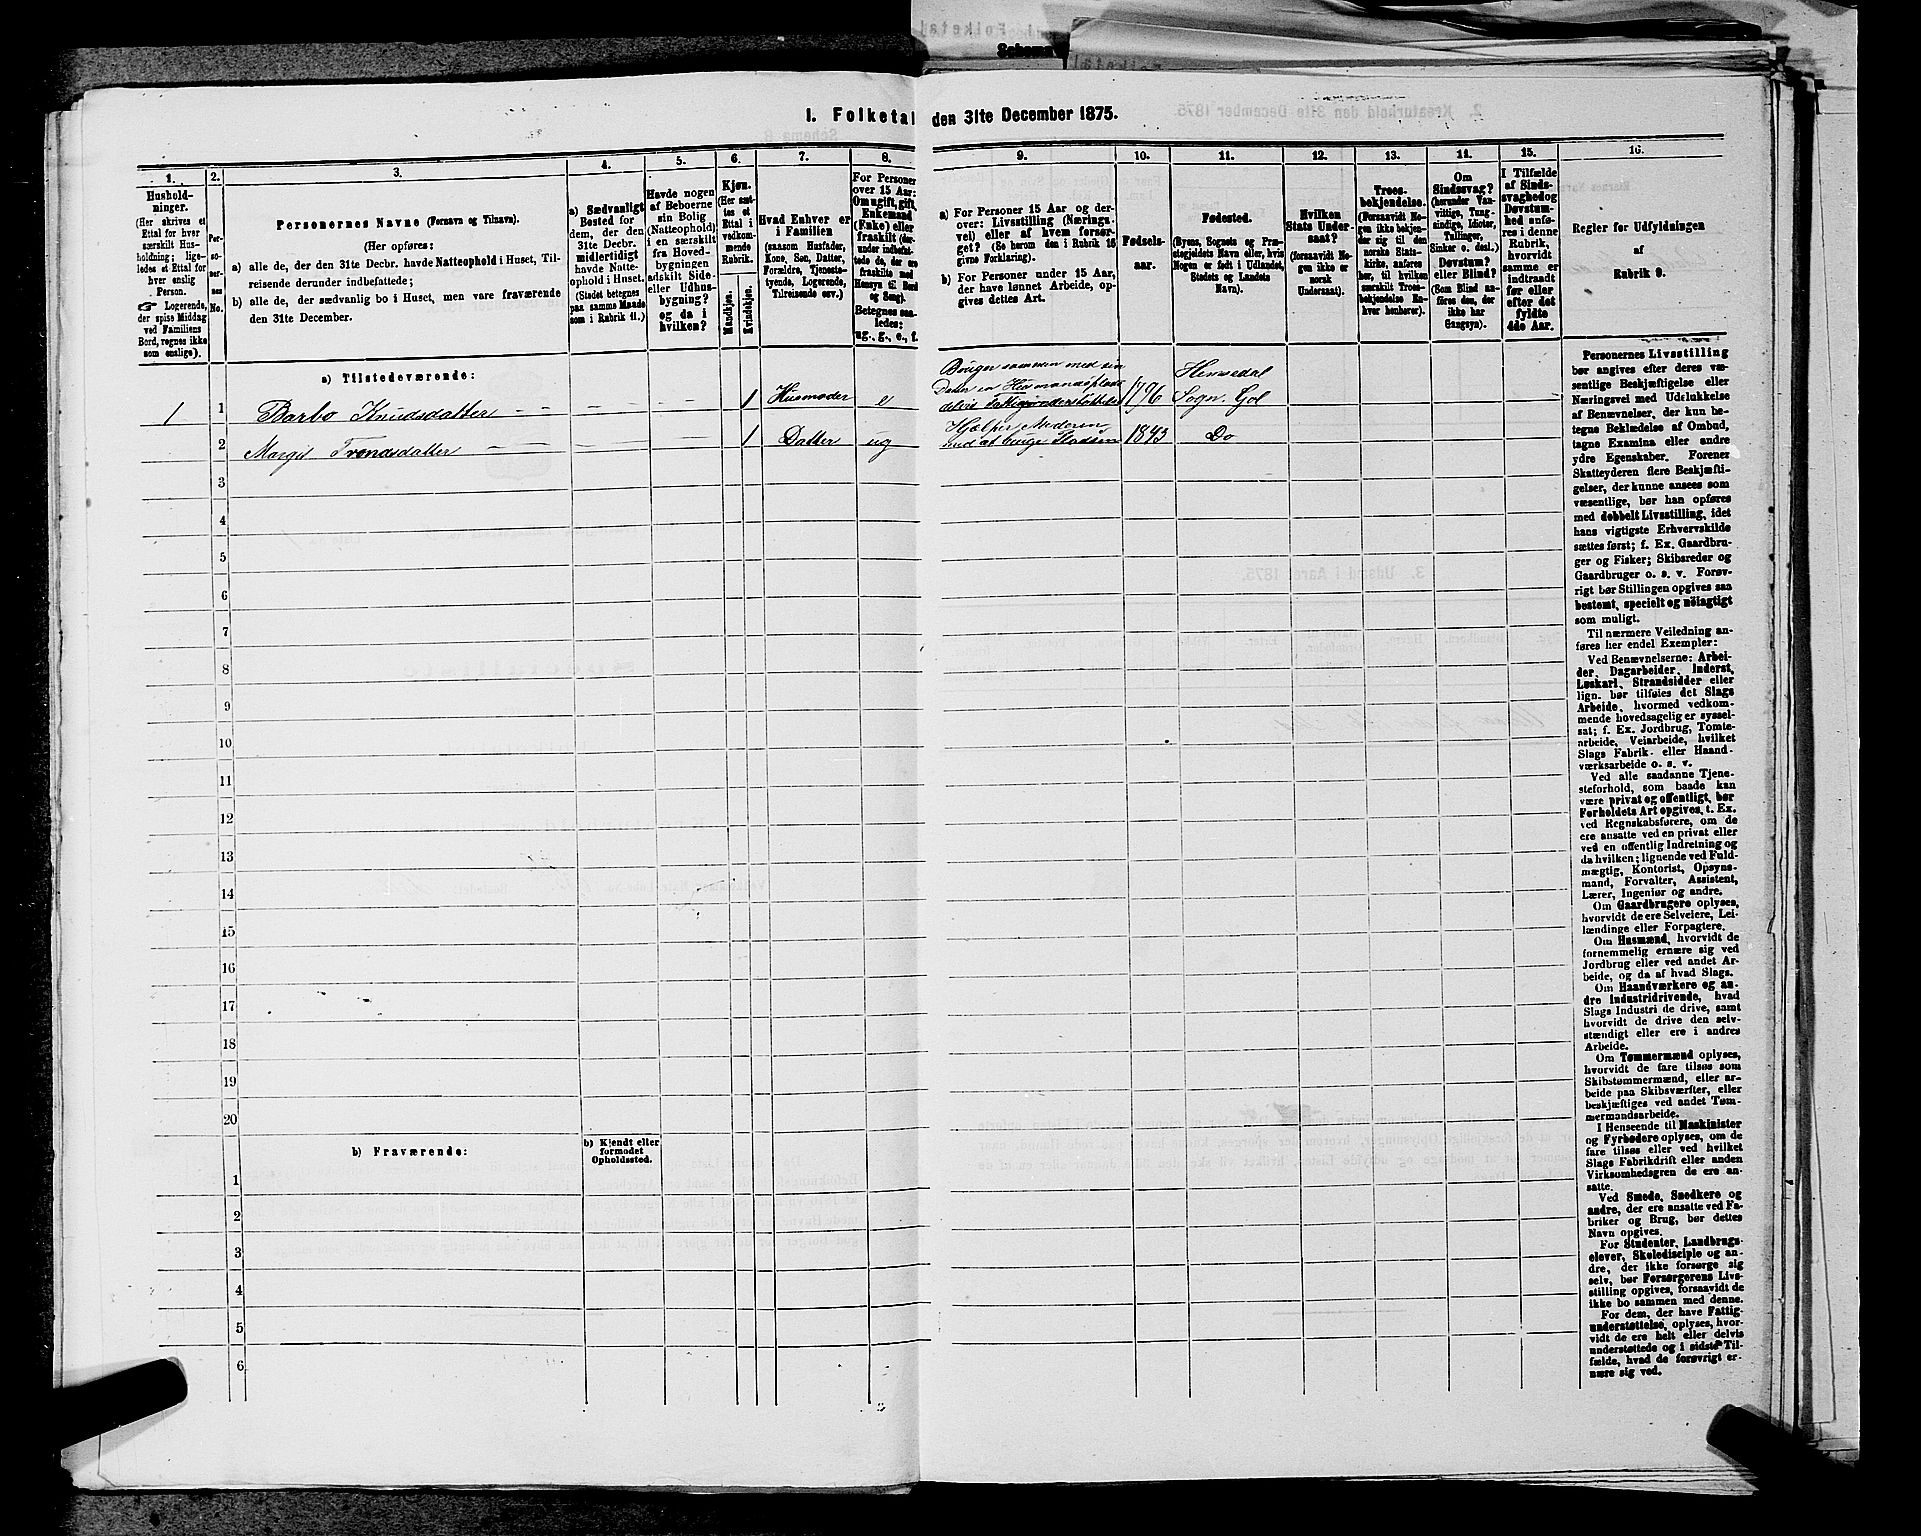 I. Folketal den 31te December 1875.
1.
Hushold-
ninger.
(Her skrives et
Ettal for hver
særskilt Hus-
holdning; lige-
ledes et Ettal for
hver enslig
Person.
☞ Logerende,
der spise Middag
ved Familiens
Bord, regnes ikke
som enslige).
2.
Per-
so-
ner-
nes
No.
3.
Personernes Navne (Fornavn og Tilnavn).
(Her opføres:
a) alle de, der den 31te Decbr. havde Natteophold i Huset, Til-
reisende derunder indbefattede;
b) alle de, der sædvanlig bo i Huset, men vare fraværende
den 31te December.
4.
a) Sædvanligt
Bosted for
dem, der den
31te Decbr.
midlertidigt
havde Natte-
ophold i Huset.
(Stedet betegnes
paa samme Maade
som i Rubrik 11.)
5.
Havde nogen
af Beboerne
sin Bolig
(Natteophold)
i en særskilt
fra Hoved-
bygningen
adskilt Side-
eller Udhus-
bygning?
og da i
hvilken?
6.
Kjøn.
(Her sæt-
tes et
Ettal i
vedkom-
mende
Rubrik.
Mandkjøn.
Kvindekjøn.
7.
Hvad Enhver er
i Familien
(saasom Husfader,
Kone, Søn, Datter,
Forældre, Tjeneste-
tyende, Logerende,
Tilreisende osv.)
8.
For Personer
over 15 Aar:
Om ugift, gift,
Enkemand
(Enke) eller
fraskilt (der-
under indbefat-
tede de, der ere
fraskilte med
Hensyn til Bord
og Seng).
Betegnes saa-
ledes:
ug., g., e., f.
9.
a) For Personer 15 Aar og der-
over: Livsstilling (Nærings-
vei) eller af hvem forsør-
get? (Se herom den i Rubrik 16
givne Forklaring).
b) For Personer under 15 Aar,
der have lønnet Arbeide, op-
gives dettes Art.
10.
Fødsels-
aar.
11.
Fødested.
(Byens, Sognets og Præ-
stegjeldets Navn eller, hvis
Nogen er født i Udlandet,
Stedets og Landets
Navn).
12.
Hvilken
Stats Under-
saat?
(forsaavidt No-
gen ikke er
norsk
Undersaat).
13.
Troes-
bekjendelse.
(Forsaavidt No-
gen ikke bekjen-
der sig til den
norske Stats-
kirke, anføres
her, til hvilken
særskilt Troes-
bekjendelse En-
hver henhører).
14.
Om
Sindssvag?
(herunder Van-
vittige, Tung-
sindige, Idioter,
Tullinger,
Sinker o. desl.)
Døvstum?
eller Blind?
(Som Blind an-
føres den, der
ikke har
Gangsyn).
15.
I Tilfælde
af Sinds-
svaghed og
Døvstum-
hed anfø-
res i denne
Rubrik,
hvorvidt
samme er
indtraadt
før eller
efter det
fyldte
4de Aar.
16.
Regler for Udfyldningen
af
Rubrik 9.
a) Tilstedeværende:
1 1 Barbo Knudsdatter — — — — 1 Husmoder e Bruger sammen med sin
Datter en Husmandsplads
delvis Fattigunderstøttelse 1796 Hemsedal
Sogn. Gol
2 Margit Trondsdatter — — — — 1 Datter ug Hjælper Moderen
med at bruge Pladsen 1843 Do
3
4
5
6
7
8
9
10
11
12
13
14
15
16
17
18
19
20
b) Fraværende:
b) Kjendt eller
formodet
Opholdssted.
1
2
3
4
5
6
Personernes Livsstilling
bør angives efter deres væ-
sentlige Beskjæftigelse eller
Næringsvei med Udelukkelse
af Benævnelser, der kun be-
tegne Beklædelse af Ombud,
tagne Examina eller andre
ydre Egenskaber. Forener
Skatteyderen flere Beskjæfti-
gelser, der kunne ansees som
væsentlige, bør han opføres
med dobbelt Livsstilling, idet
hans vigtigste Erhvervskilde
sættes først; f. Ex. Gaardbru-
ger og Fisker; Skibsreder og
Gaardbruger o. s. v. Forøv-
rigt bør Stillingen opgives saa
bestemt, specielt og nøiagtigt
som muligt.
Til nærmere Veiledning an-
føres her endel Exempler:
Ved Benævnelserne: Arbei-
der, Dagarbeider, Inderst,
Løskarl, Strandsidder eller
lign. bør tilføies det Slags
Arbeide, hvormed vedkom-
mende hovedsagelig er syssel-
sat; f. Ex. Jordbrug, Tomte-
arbeide, Veiarbeide, hvilket
Slags Fabrik- eller Haand-
værksarbeide o. s. v.
Ved alle saadanne Tjene-
steforhold, som baade kan
være privat og offentligt, bør
Forholdets Art opgives, t. Ex.
ved Regnskabsførere, om de
ere ansatte ved en privat eller
ved en offentlig Indretning og
da hvilken; lignende ved Fuld-
mægtig, Kontorist, Opsyns-
mand, Forvalter, Assistent,
Lærer, Ingeniør og andre.
Om Gaardbrugere oplyses,
hvorvidt de ere Selveiere, Lei-
lændinge eller Forpagtere.
Om Husmænd, hvorvidt de
fornemmelig ernære sig ved
Jordbrug eller ved andet Ar-
beide, og da af hvad Slags.
Om Haandværkere og an-
dre Industridrivende, hvad
Slags Industri de drive, samt
hvorvidt de drive den selv-
stændigt eller ere i andres
Arbeide.
Om Tømmermænd oplyses,
hvorvidt de fare tilsøs som
Skibstømmermænd, eller ar-
beide paa Skibsværfter, eller
beskjæftiges ved andet Tøm-
mermandsarbeide.
I Henseende til Maskinister
og Fyrbødere oplyses, om de
fare tilsøs eller ved hvilket
Slags Fabrikdrift eller anden
Virksomhedsgren de ere an-
satte.
Ved Smede, Snedkere og
andre, der ere ansatte ved Fa-
briker og Brug, bør dettes
Navn opgives.
For Studenter, Landbrugs-
elever, Skoledisciple og an-
dre, der ikke forsørge sig
selv, bør Forsørgerens Livs-
stilling opgives, forsaavidt de
ikke bo sammen med denne.
For dem, der have Fattig-
understøttelse, oplyses, hvor-
vidt de ere helt eller delvis
understøttede og i sidste Til-
fælde, hvad de forøvrigt er-
nære sig ved.